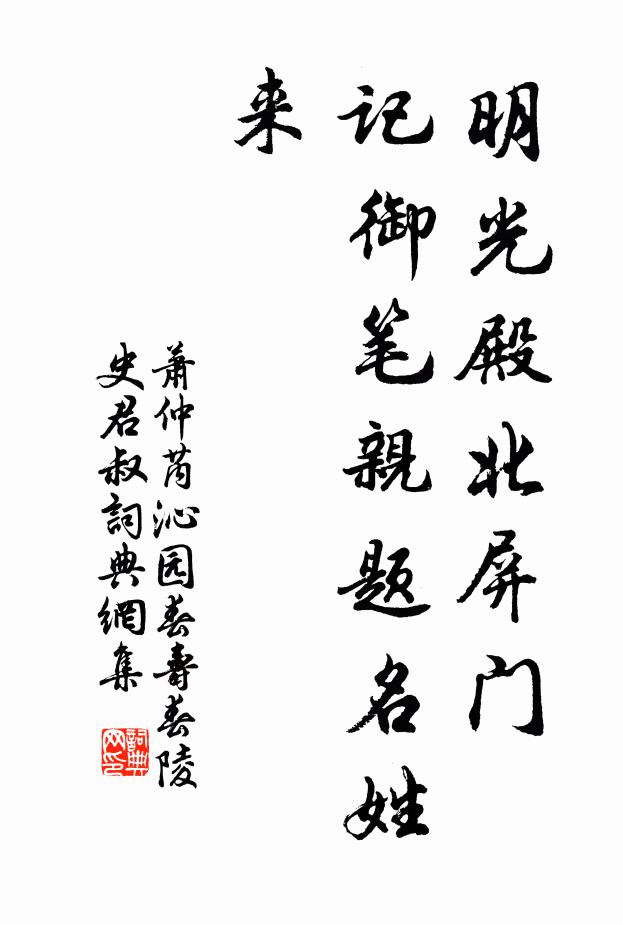 明光殿北屏门
记御笔親题名姓
来
萧仲芮沁园春壽春陵
史君叔詞典網集
詞典网印